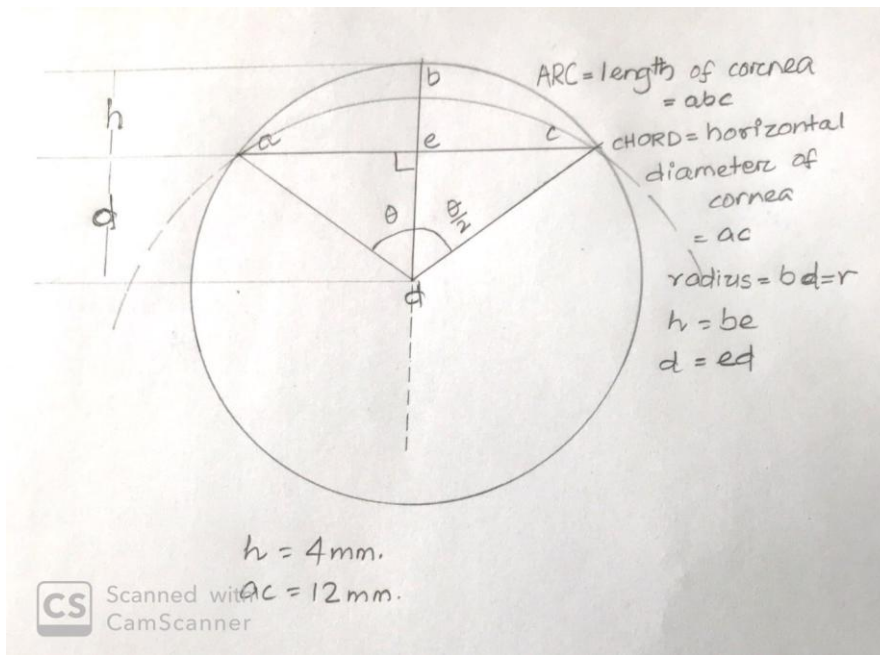 b
h
a
e
c
d
θ
θ/2
d
ARC = length of cornea
= abc
CHORD = horizontal
diameter of
cornea
= ac
radius = bd = r
h = be
d = ed
h = 4mm.
ac = 12mm.
CS Scanned with
CamScanner